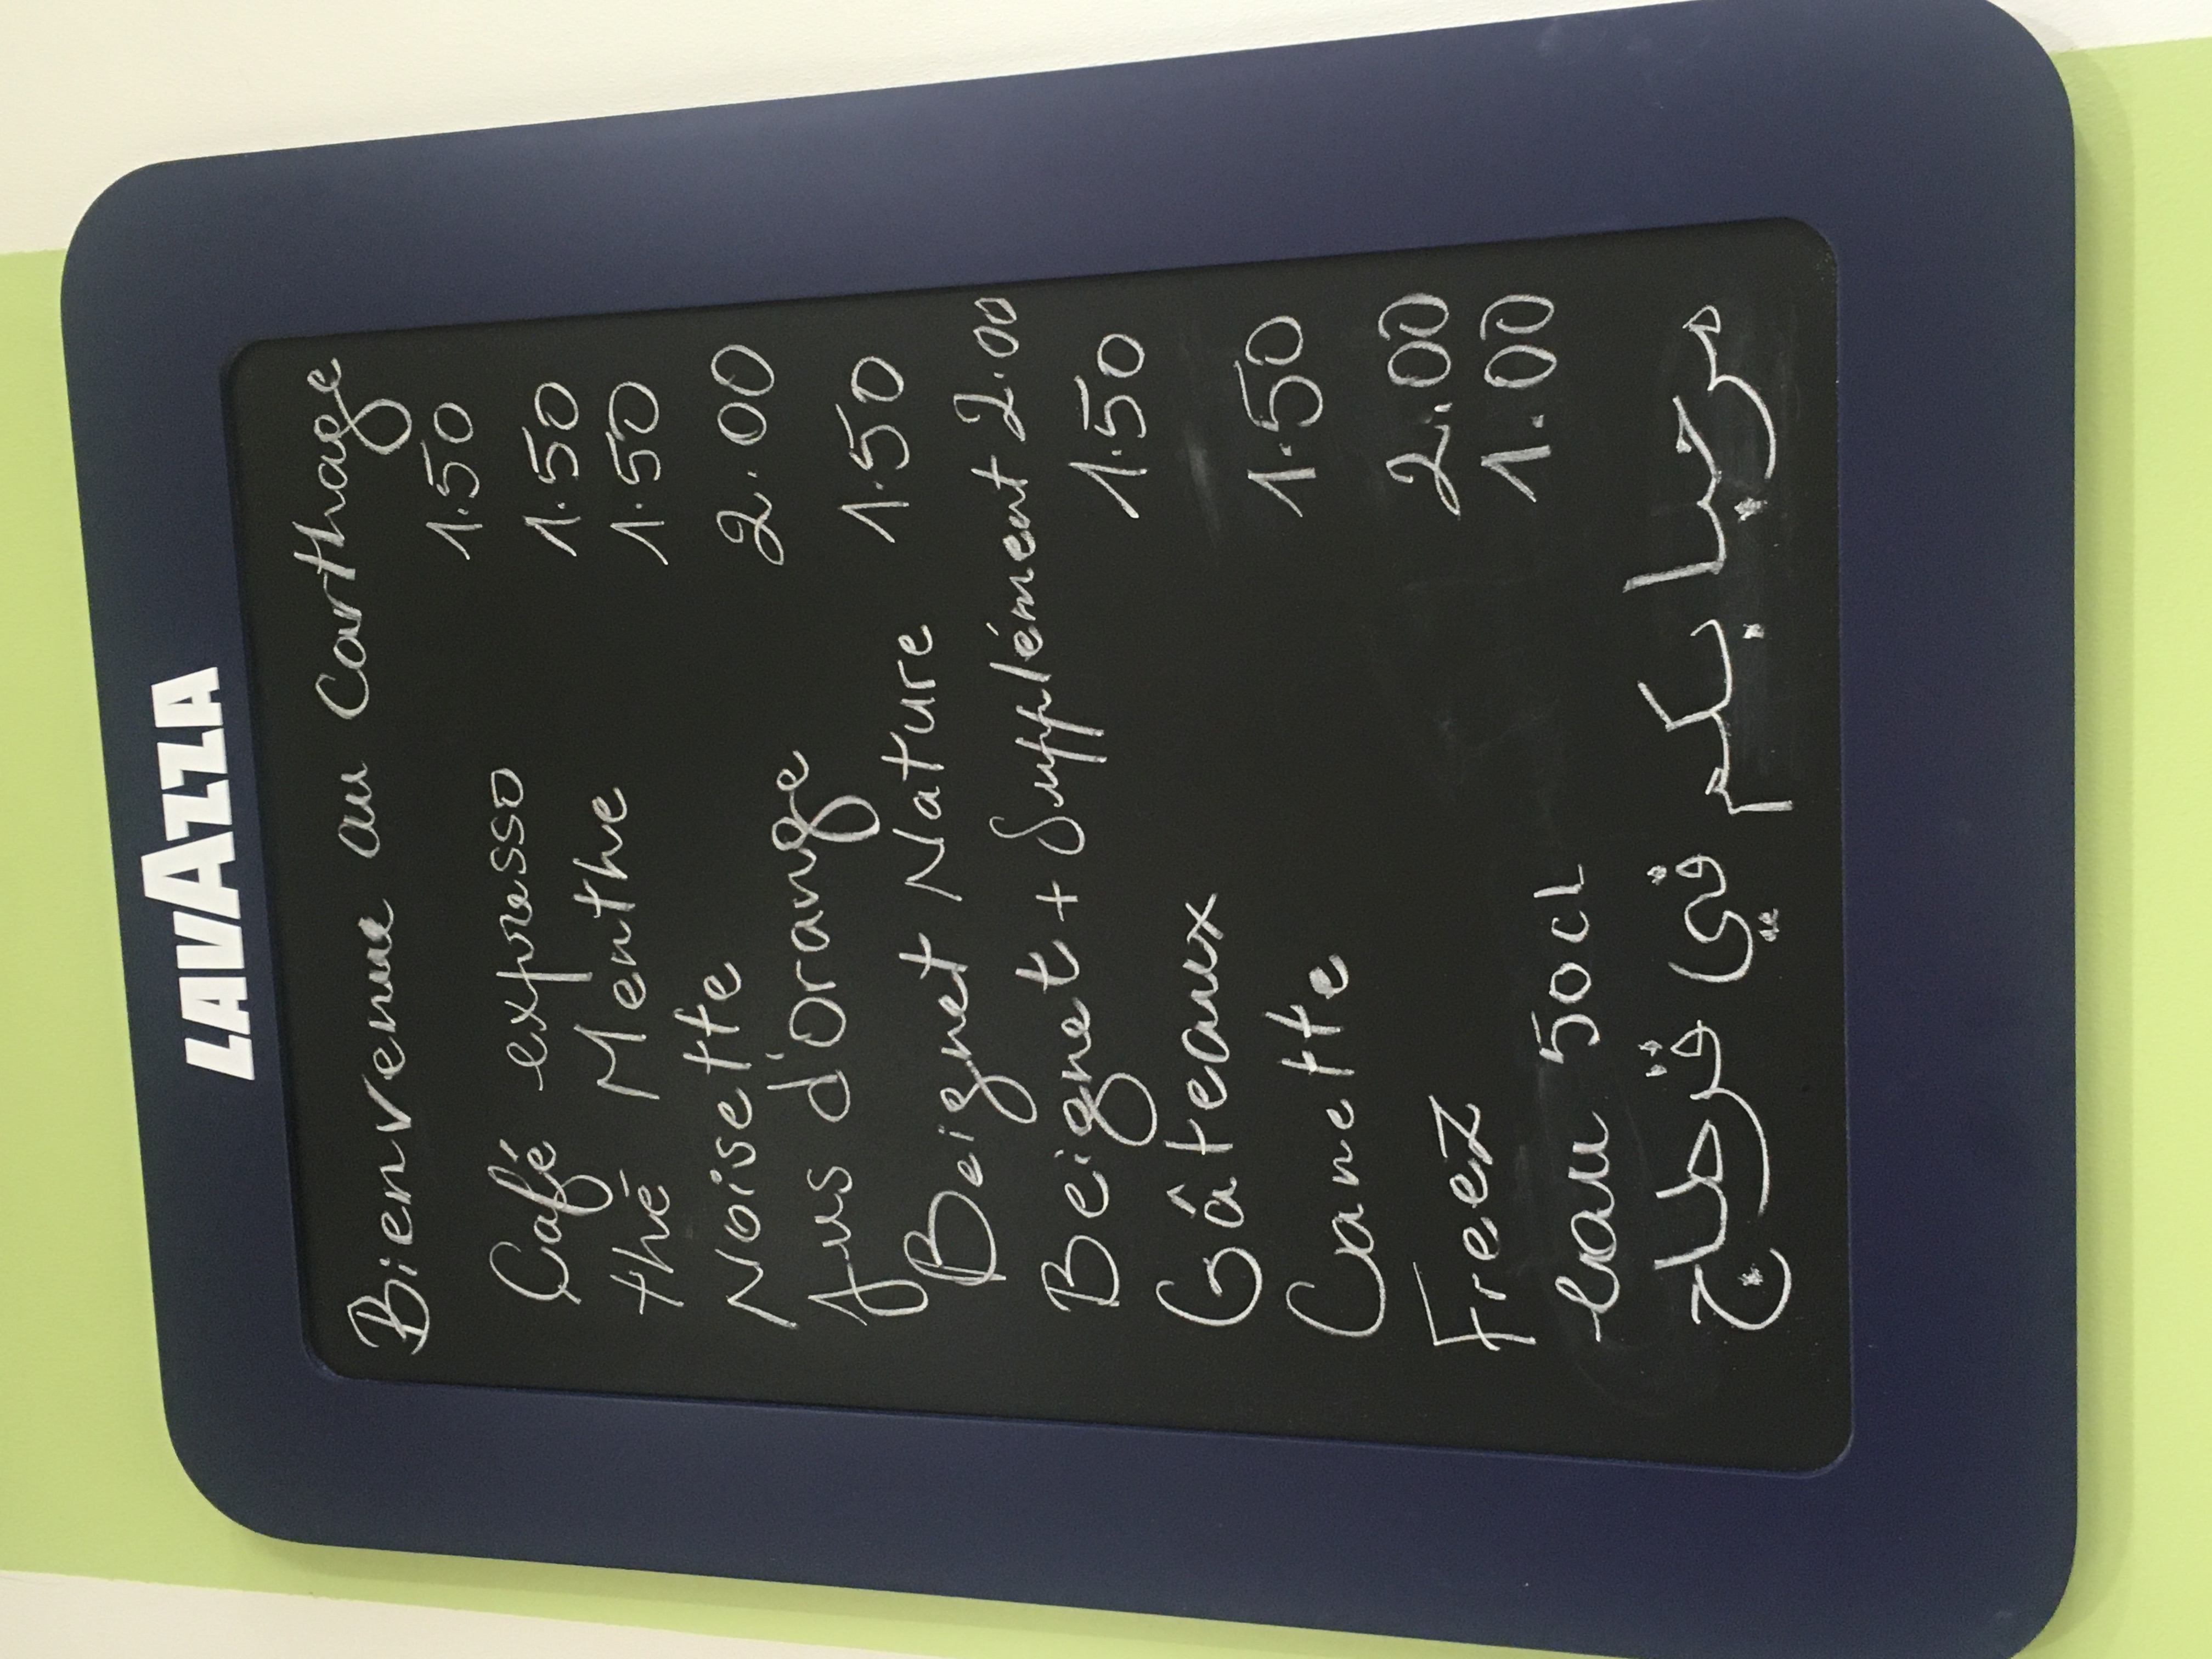 LAVAZZA
Bienvenue au Carthage
1.50
Café expresso 1.50
thé Menthe 1.50
Noisette 2.00
Jus d'orange 1.50
Beignet Nature
Beignet + Supplément 2.00
Gâteaux 1.50
Canette 1.50
Freez 2.00
eau 50cl 1.00
مرحبا بكم في قرطاج